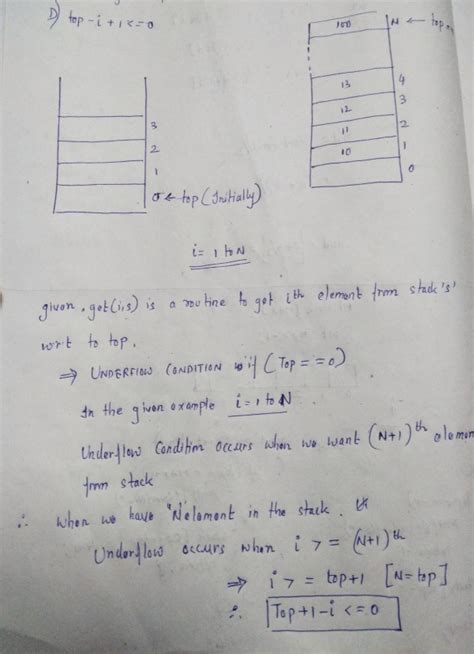 D) top - i + 1 <= 0
100 N ← top
13 4
12 3
11 2
10 1
0
3
2
1
0 ← top (Initially)
i = 1 to N
given, get(i,s) is a routine to get ith element from stack 's'
wrt to top.
⇒ UNDERFLOW CONDITION if (Top == 0)
In the given example i = 1 to N
Underflow Condition occurs when we want (N+1)th elemen
from stack
∴ when we have 'N' element in the stack.
Underflow occurs when i >= (N+1)th
⇒ i >= top+1 [N = top]
∴ Top + 1 - i <= 0